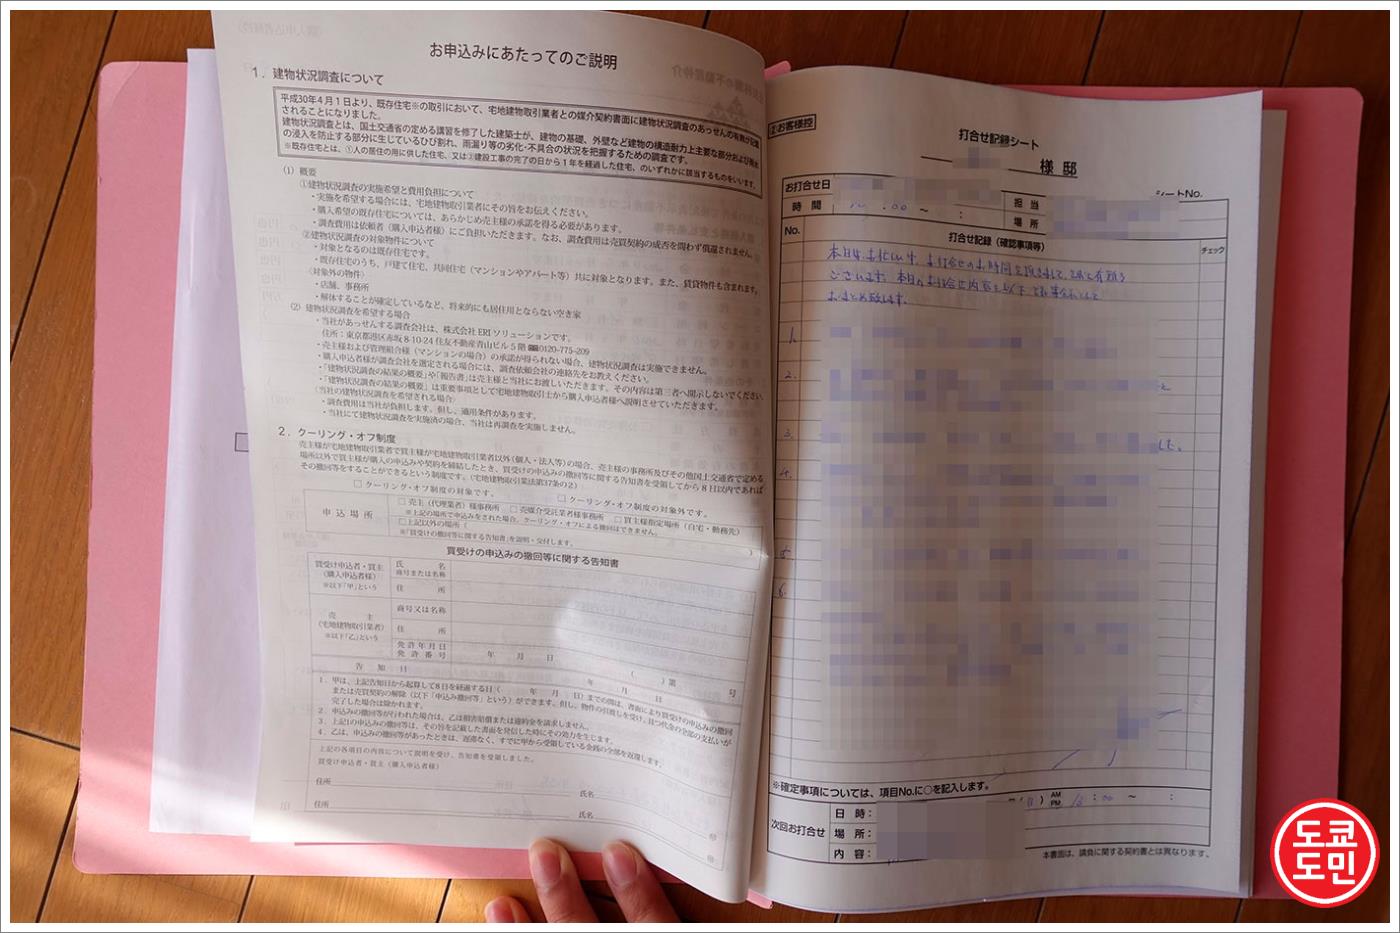 お申込みにあたってのご説明
1．建物状況調査について
平成30年4月1日より、既存住宅※の取引において、宅地建物取引業者との媒介契約書面に建物状況調査のあっせんの有無が記載
されることになりました。
建物状況調査とは、国土交通省の定める講習を修了した建築士が、建物の基礎、外壁など建物の構造耐力上主要な部分および雨水
の浸入を防止する部分に生じているひび割れ、雨漏り等の劣化・不具合の状況を把握するための調査です。
※既存住宅とは、①人の居住の用に供した住宅、又は②建設工事の完了の日から1年を経過した住宅、のいずれかに該当するものをいいます。
(1) 概要
①建物状況調査の実施希望と費用負担について
・実施を希望する場合には、宅地建物取引業者にその旨をお伝えください。
・購入希望の既存住宅については、あらかじめ売主様の承諾を得る必要があります。
・調査費用は依頼者（購入申込者様）にご負担いただきます。なお、調査費用は売買契約の成否を問わず償還されません。
②建物状況調査の対象物件について
・対象となるのは既存住宅です。
・既存住宅のうち、戸建て住宅、共同住宅（マンションやアパート等）共に対象となります。また、賃貸物件も含まれます。
〈対象外の物件〉
・店舗、事務所
・解体することが確定しているなど、将来的にも居住用とならない空き家
(2) 建物状況調査を希望する場合
・当社があっせんする調査会社は、株式会社 ERI ソリューションです。
住所：東京都港区赤坂 8-10-24 住友不動産青山ビル 5 階 ☎0120-775-209
・売主様および管理組合様（マンションの場合）の承諾が得られない場合、建物状況調査は実施できません。
・購入申込者様が調査会社を選定される場合には、調査依頼会社の連絡先をお教えください。
・「建物状況調査の結果の概要」や「報告書」は売主様と当社にお渡しいただきます。その内容は第三者へ開示しないでください。
・「建物状況調査の結果の概要」は重要事項として宅地建物取引士から購入申込者様へ説明させていただきます。
〈当社の建物状況調査を希望される場合〉
・調査費用は当社が負担します。但し、適用条件があります。
・当社にて建物状況調査を実施済の場合、当社は再調査を実施しません。
2．クーリング・オフ制度
売主様が宅地建物取引業者で買主様が宅地建物取引業者以外（個人・法人等）の場合、売主様の事務所及びその他国土交通省で定める
場所以外で買主様が購入の申込みや契約を締結したとき、買受けの申込みの撤回等に関する告知書を受領してから 8 日以内であれば
その撤回等をすることができるという制度です。（宅地建物取引業法第37条の2）
□ クーリング・オフ制度の対象です。 □ クーリング・オフ制度の対象外です。
申込場所
□ 売主（代理業者）様事務所 □ 売媒介受託業者様事務所 □ 買主様指定場所（自宅・勤務先）
※上記の場所で申込みをされた場合、クーリング・オフによる撤回はできません。
□上記以外の場所（ ）
※「買受けの申込みの撤回等に関する告知書」を説明・交付します。
買受けの申込みの撤回等に関する告知書
買受け申込者・買主
（購入申込者様）
※以下「甲」という
氏 名
商号または名称
住 所
売 主
（宅地建物取引業者）
※以下「乙」という
商号又は名称
住 所
免許年月日
免許番号
年 月 日
（ ）第 号
告 知 日
年 月 日
1．甲は、上記告知日から起算して8日を経過する日（ 年 月 日）までの間は、書面により買受けの申込みの撤回
または売買契約の解除（以下「申込み撤回等」という）ができます。但し、物件の引渡しを受け、且つ代金の全部の支払いが
完了した場合は除かれます。
2．申込みの撤回等が行われた場合は、乙は損害賠償または違約金を請求しません。
3．上記1の申込みの撤回等は、その旨を記載した書面を発信した時にその効力を生じます。
4．乙は、申込みの撤回等があったときは、遅滞なく、すでに甲から受領している金銭の全部を返還します。
上記の各項目の内容について説明を受け、告知書を受領しました。
買受け申込者・買主（購入申込者様）
住所 氏名
住所 氏名
②お客様控
打合せ記録シート
様 邸
お打合せ日
シートNo.
時 間
:00 ～ :
担 当
場 所
No.
打合せ記録（確認事項等）
チェック
本日は、お忙しい中、お打合せのお時間を頂きまして、誠に有難う
ございます。本日のお打合せ内容を以下
おまとめ致します。
1.
2.
3.
した。
4.
5
6.
※確定事項については、項目No.に○を記入します。
次回お打合せ
日 時：
AM
PM
:00 ～ :
場 所：
内 容：
本書面は、請負に関する契約書とは異なります。
도쿄
도민